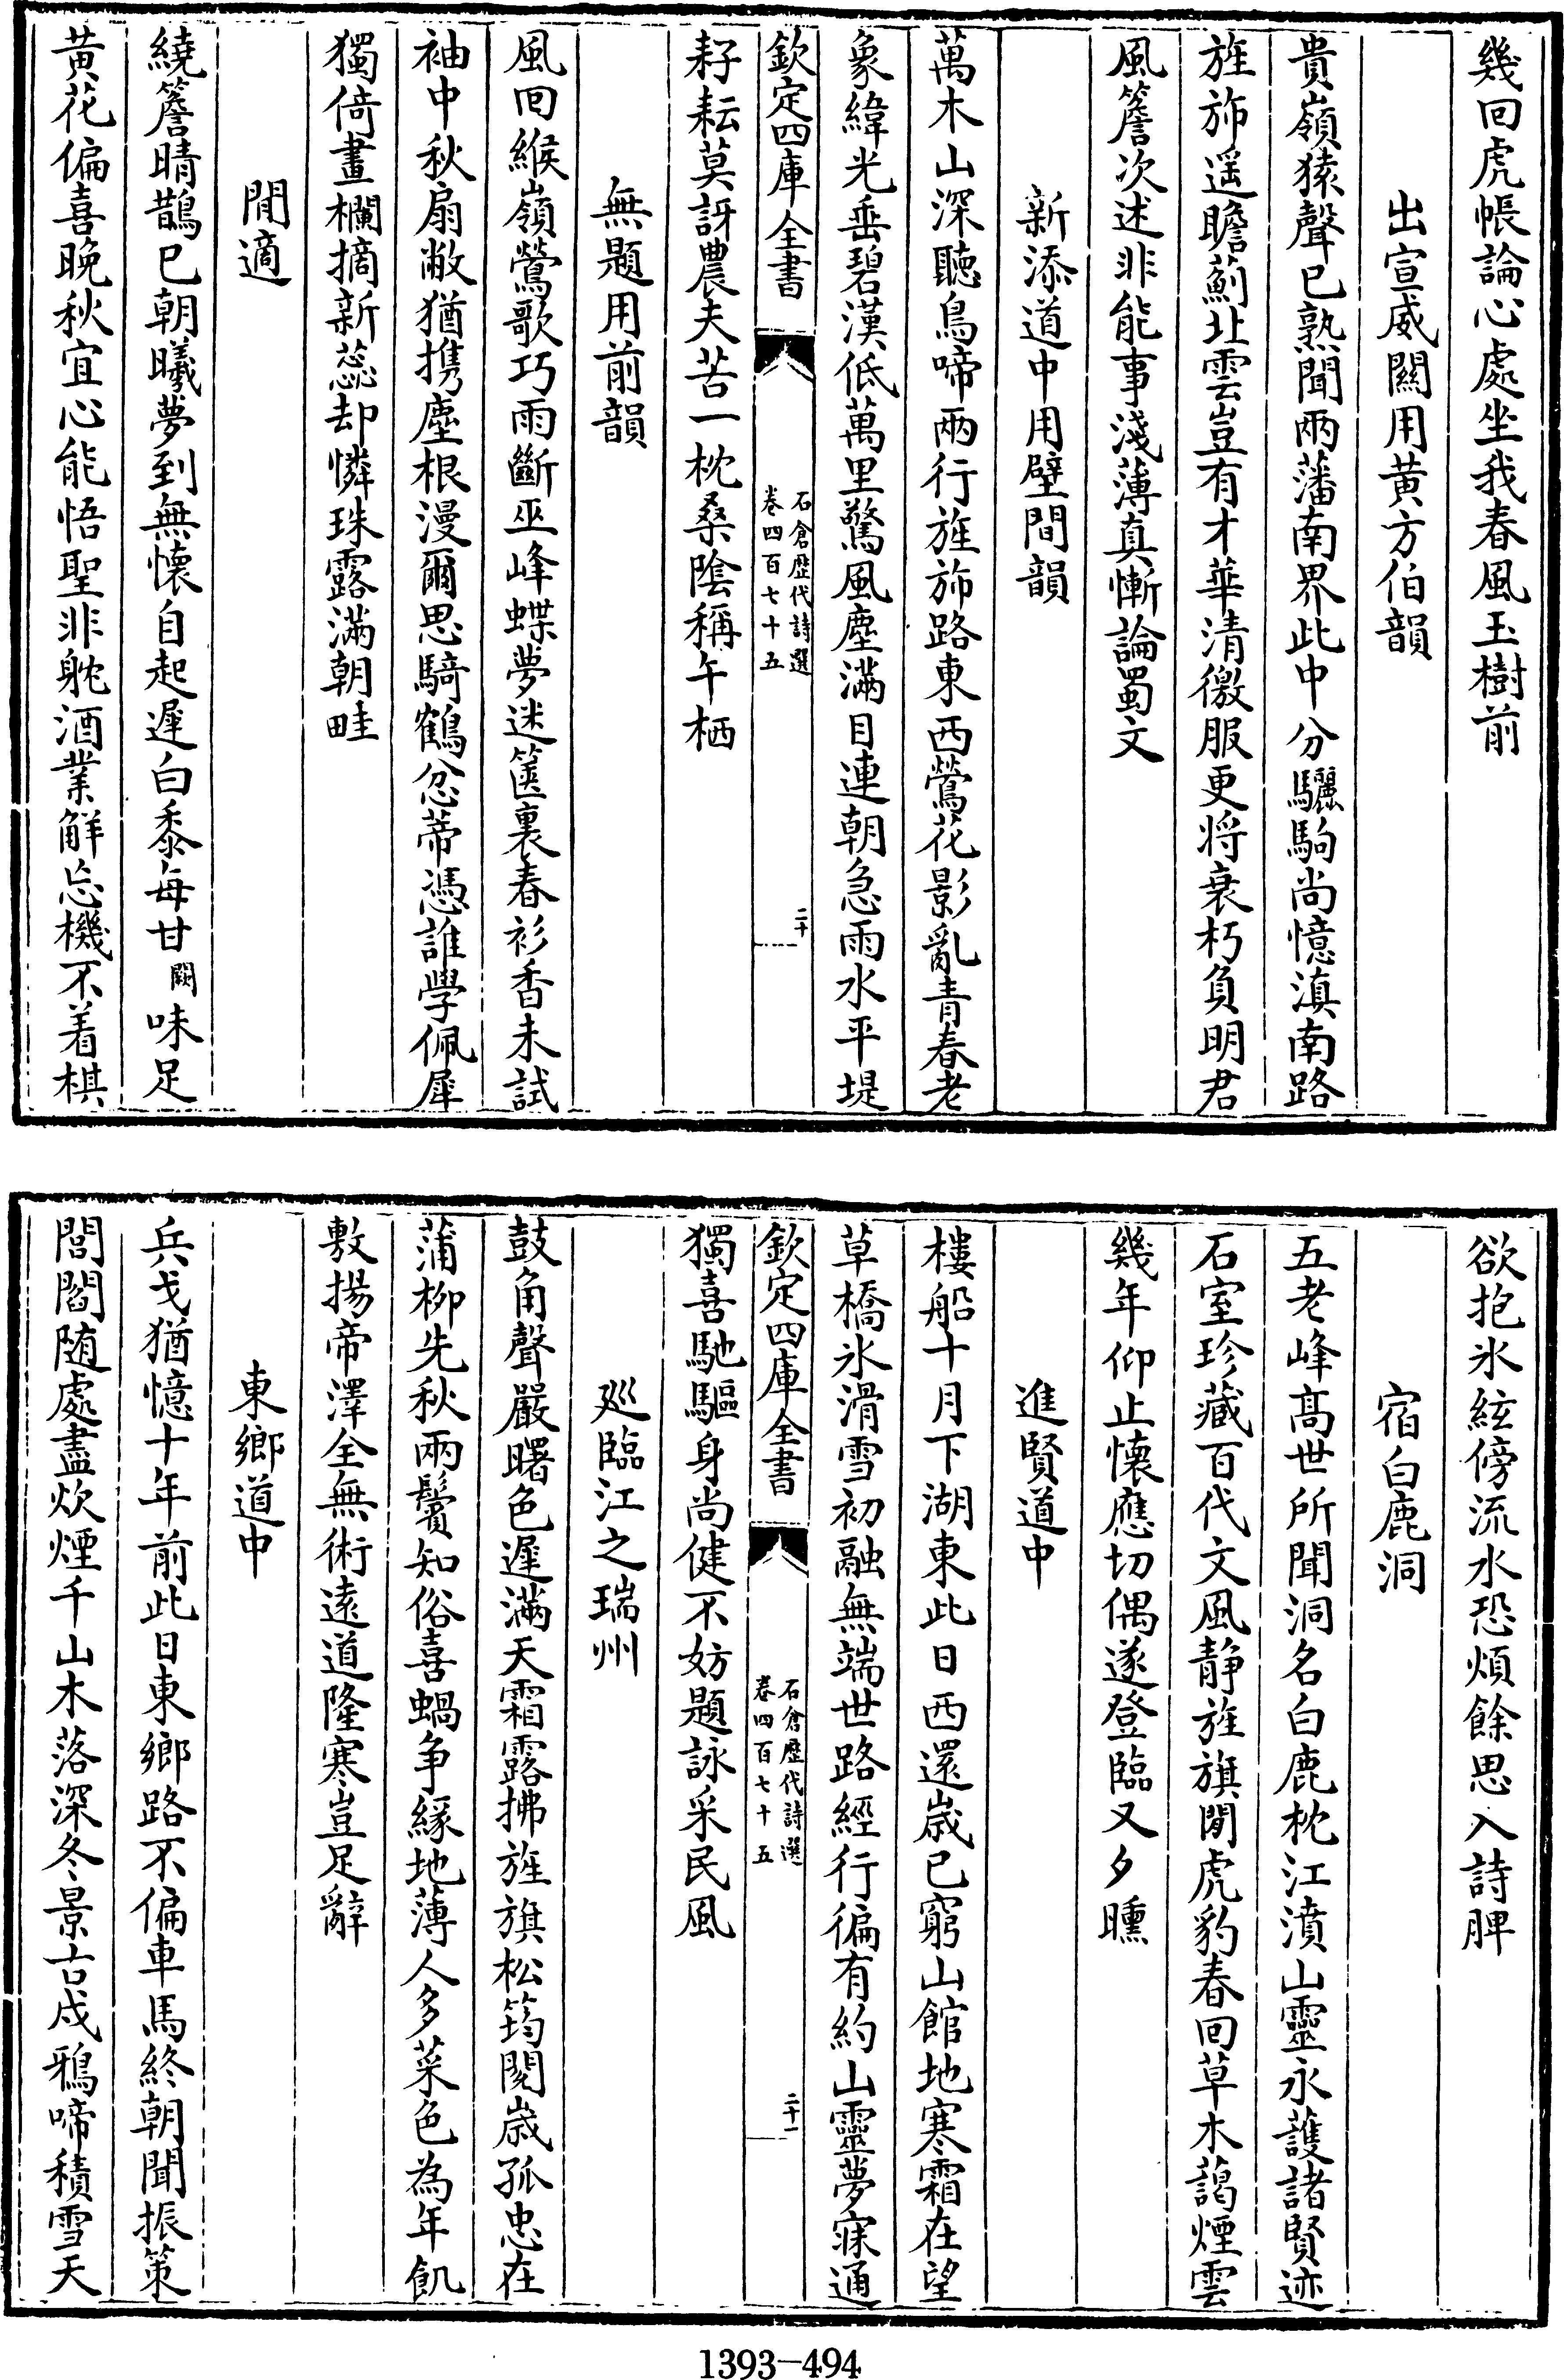 幾回虎帳論心處坐我春風玉樹前
出宣威關用黄方伯韻
貴嶺猿聲已熟聞兩藩南界此中分驪駒尚憶滇南路
旌斾遥瞻薊北雲豈有才華清徼服更将衰朽負明君
風簷次述非能事淺薄真慚論蜀文
新添道中用壁間韻
萬木山深聽鳥啼兩行旌斾路東西鶯花影亂青春老
象緯光垂碧漢低萬里驚風塵滿目連朝急雨水平堤
欽定四庫全書
石倉歴代詩選
卷四百七十五
二十
耔耘莫訝農夫苦一枕桑陰稱午栖
無題用前韻
風回緱嶺鶯歌巧雨斷巫峰蝶夢迷篋裏春衫香未試
袖中秋扇敝猶携塵根漫爾思騎鶴忿蒂憑誰學佩犀
獨倚畫欄摘新蕊却憐珠露滿朝畦
閒適
繞簷晴鵲已朝曦夢到無懷自起遲白黍每甘闕味足
黄花偏喜晚秋宜心能悟聖非躭酒業解忘機不着棋
欲抱氷絃傍流水恐煩餘思入詩脾
宿白鹿洞
五老峰髙世所聞洞名白鹿枕江濆山靈永護諸賢迹
石室珍藏百代文風静旌旗閒虎豹春回草木藹煙雲
幾年仰止懷應切偶遂登臨又夕曛
進賢道中
樓船十月下湖東此日西還嵗已窮山館地寒霜在望
草橋氷滑雪初融無端世路經行徧有約山靈夢寐通
欽定四庫全書
石倉歴代詩選
卷四百七十五
二十一
獨喜馳驅身尚健不妨題詠采民風
廵臨江之瑞州
鼓角聲嚴曙色遲滿天霜露拂旌旗松筠閱嵗孤忠在
蒲柳先秋兩鬢知俗喜蝸争緣地薄人多菜色為年飢
敷揚帝澤全無術遠道隆寒豈足辭
東鄉道中
兵戈猶憶十年前此日東鄉路不偏車馬終朝聞振策
閭閻随處盡炊煙千山木落深冬景古戍鴉啼積雪天
1393-494